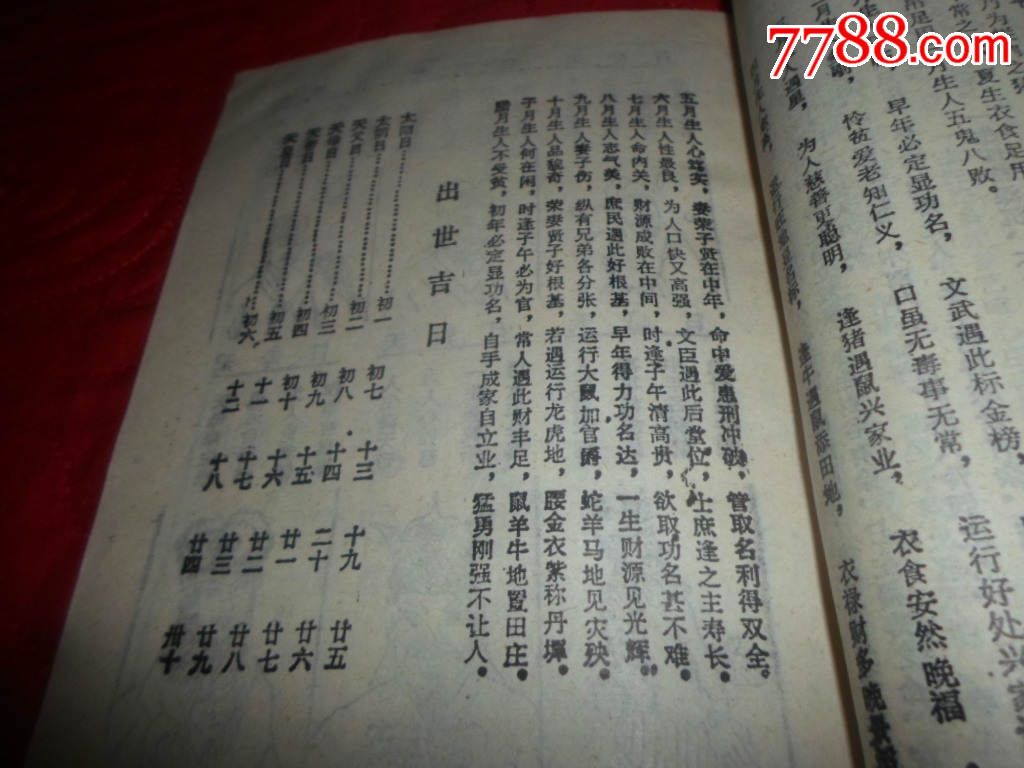 7788.com
夏生衣食足用
月生人五鬼八败。
早年必定显功名， 文武遇此标金榜，
怜贫爱老知仁义， 口虽无毒事无常， 运行好处兴家
为人慈善更聪明， 逢猪遇鼠兴家业， 衣食安然晚福
逢牛遇鼠添田地， 衣禄财多晚景
五月生人心, 妻荣子贤在中年，命中爱惠刑冲破，管取名利得双全。
六月生人性最良，为人口快又高强，文臣遇此后堂位，士庶逢之主寿长。
七月生人命内关，财源成败在中间，时逢子午清高贵，欲取功名甚不难。
八月生人志气美，庶民遇此好根基，早年得力功名达，一生财源见光辉。
九月生人妻子伤，纵有兄弟各分张，运行大鼠加官爵，蛇羊马地见灾殃。
十月生人品貌奇，荣妻贤子好根基，若遇运行龙虎地，腰金衣紫称丹墀。
子月生人何在闲，时逢子午必为官，常人遇此财丰足，鼠羊牛地置田庄。
腊月生人不受贫，初年必定显功名，自手成家自立业，猛勇刚强不让人。
出世吉日
日……初一 初七 十三 十九 廿五
日……初二 初八 十四 二十 廿六
日……初三 初九 十五 廿一 廿七
日……初四 初十 十六 廿二 廿八
日……初五 十一 十七 廿三 廿九
日……初六 十二 十八 廿四 卅十